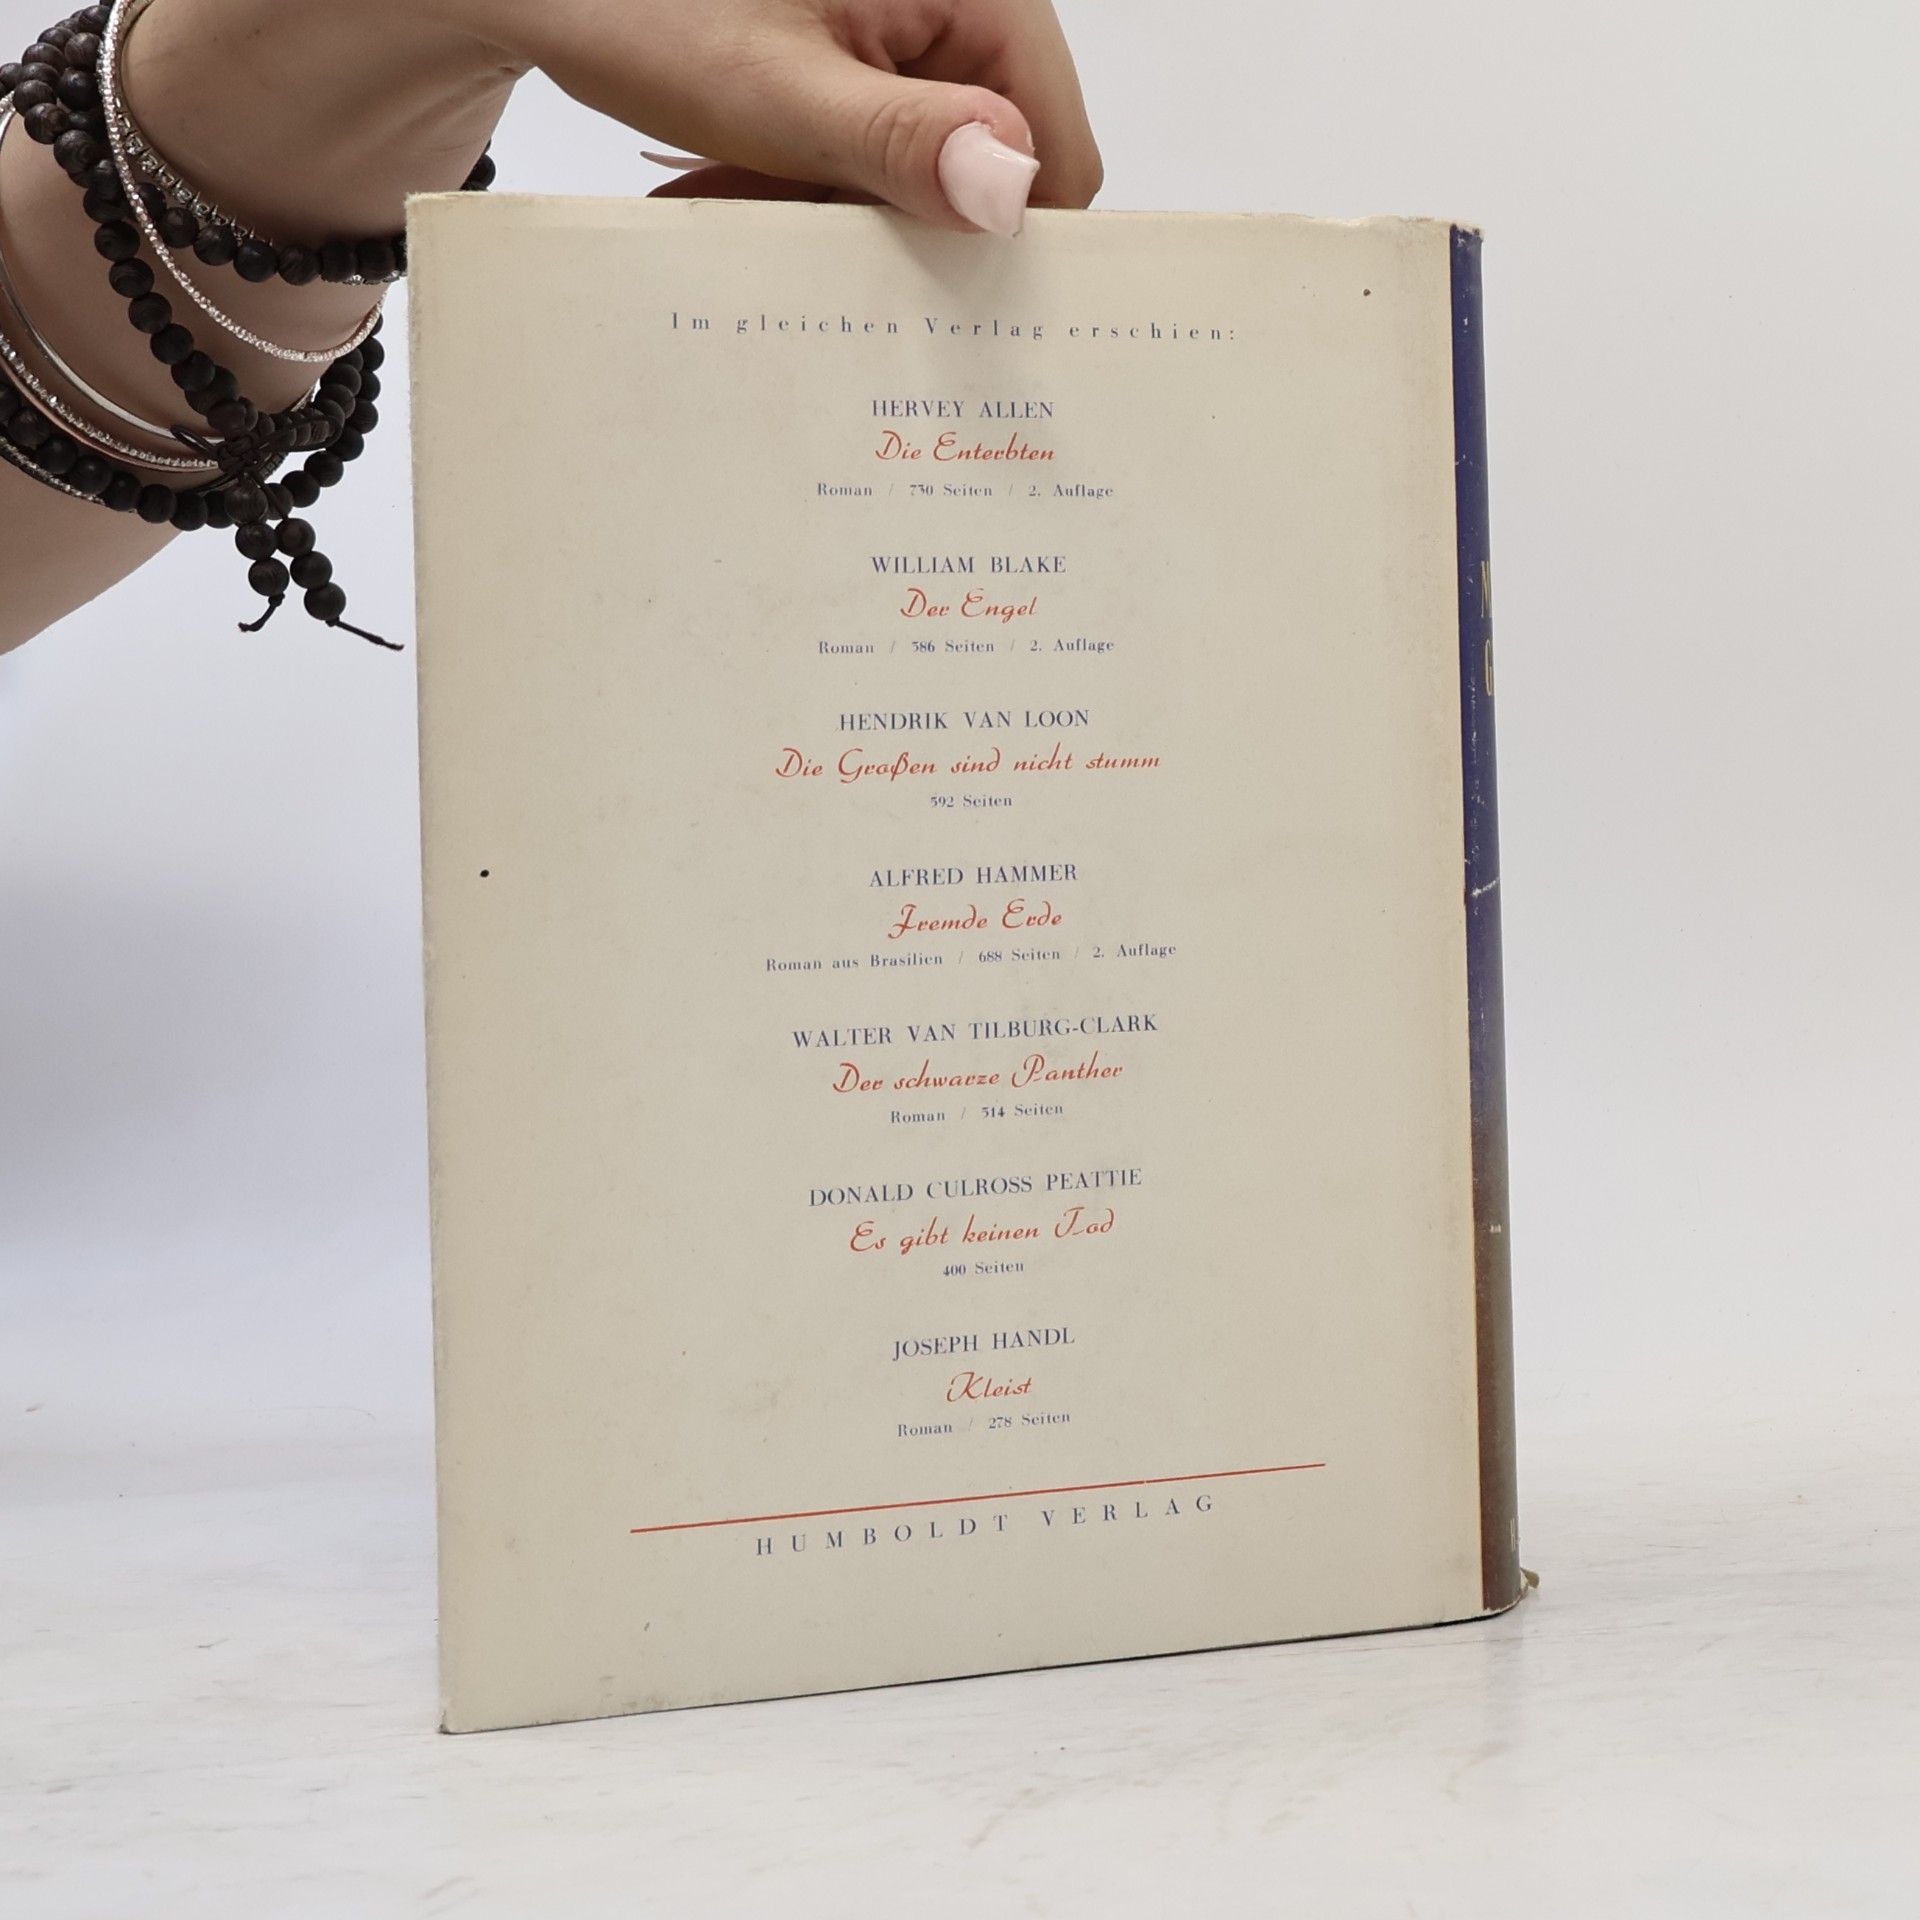 Im gleichen Verlag erschien:
HERVEY ALLEN
Die Enterbten
Roman / 730 Seiten / 2. Auflage
WILLIAM BLAKE
Der Engel
Roman / 386 Seiten / 2. Auflage
HENDRIK VAN LOON
Die Großen sind nicht stumm
592 Seiten
ALFRED HAMMER
Fremde Erde
Roman aus Brasilien / 688 Seiten / 2. Auflage
WALTER VAN TILBURG-CLARK
Der schwarze Panther
Roman / 314 Seiten
DONALD CULROSS PEATTIE
Es gibt keinen Tod
400 Seiten
JOSEPH HANDL
Kleist
Roman / 278 Seiten
HUMBOLDT VERLAG